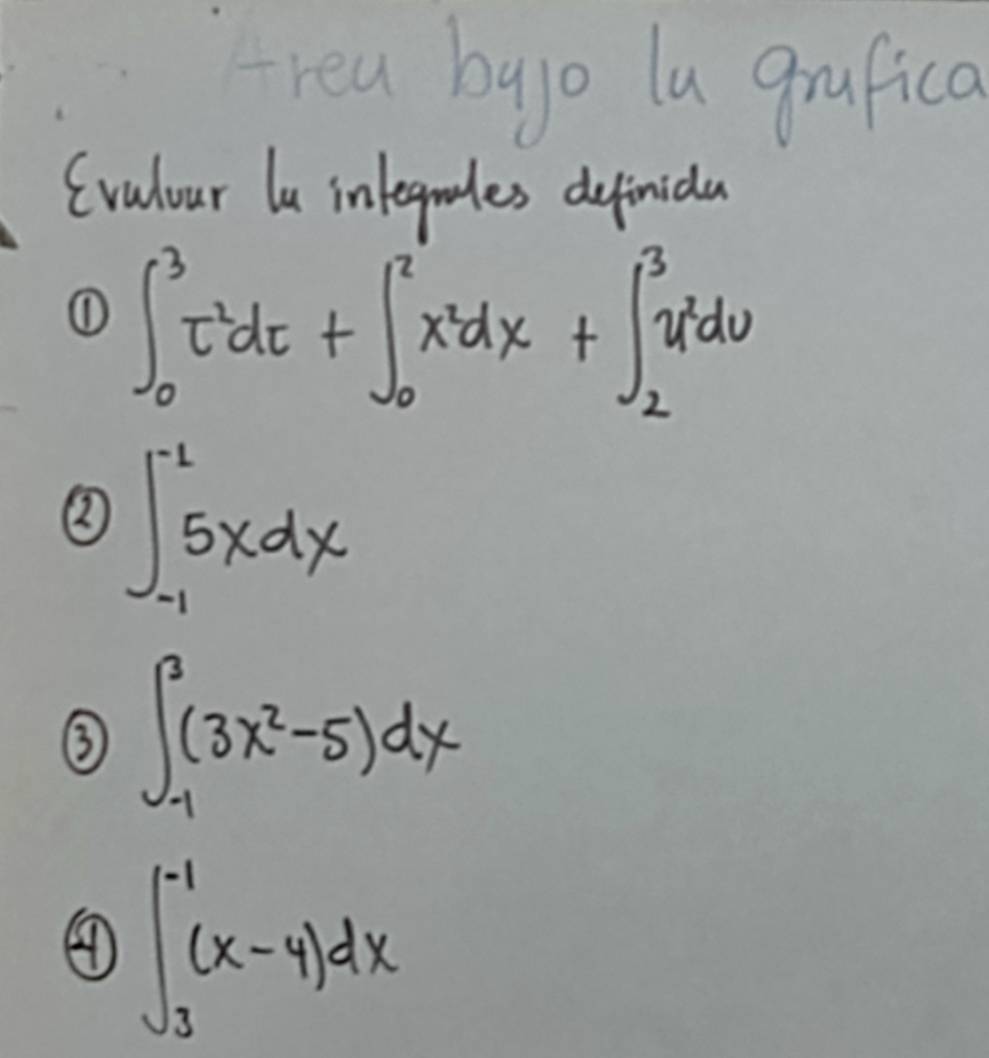 Area bajo la grafica
Evaluar la integrales definida
① ∫₀³ t²dt + ∫₀² x²dx + ∫₂³ u²du
② ∫₋₁⁻¹ 5xdx
③ ∫₋₁³ (3x²-5)dx
④ ∫₃⁻¹ (x-4)dx